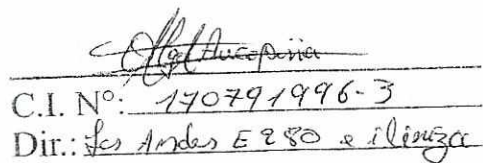 C.I. N°: 170791996-3
Dir.: Los Andes E280 e iliniza